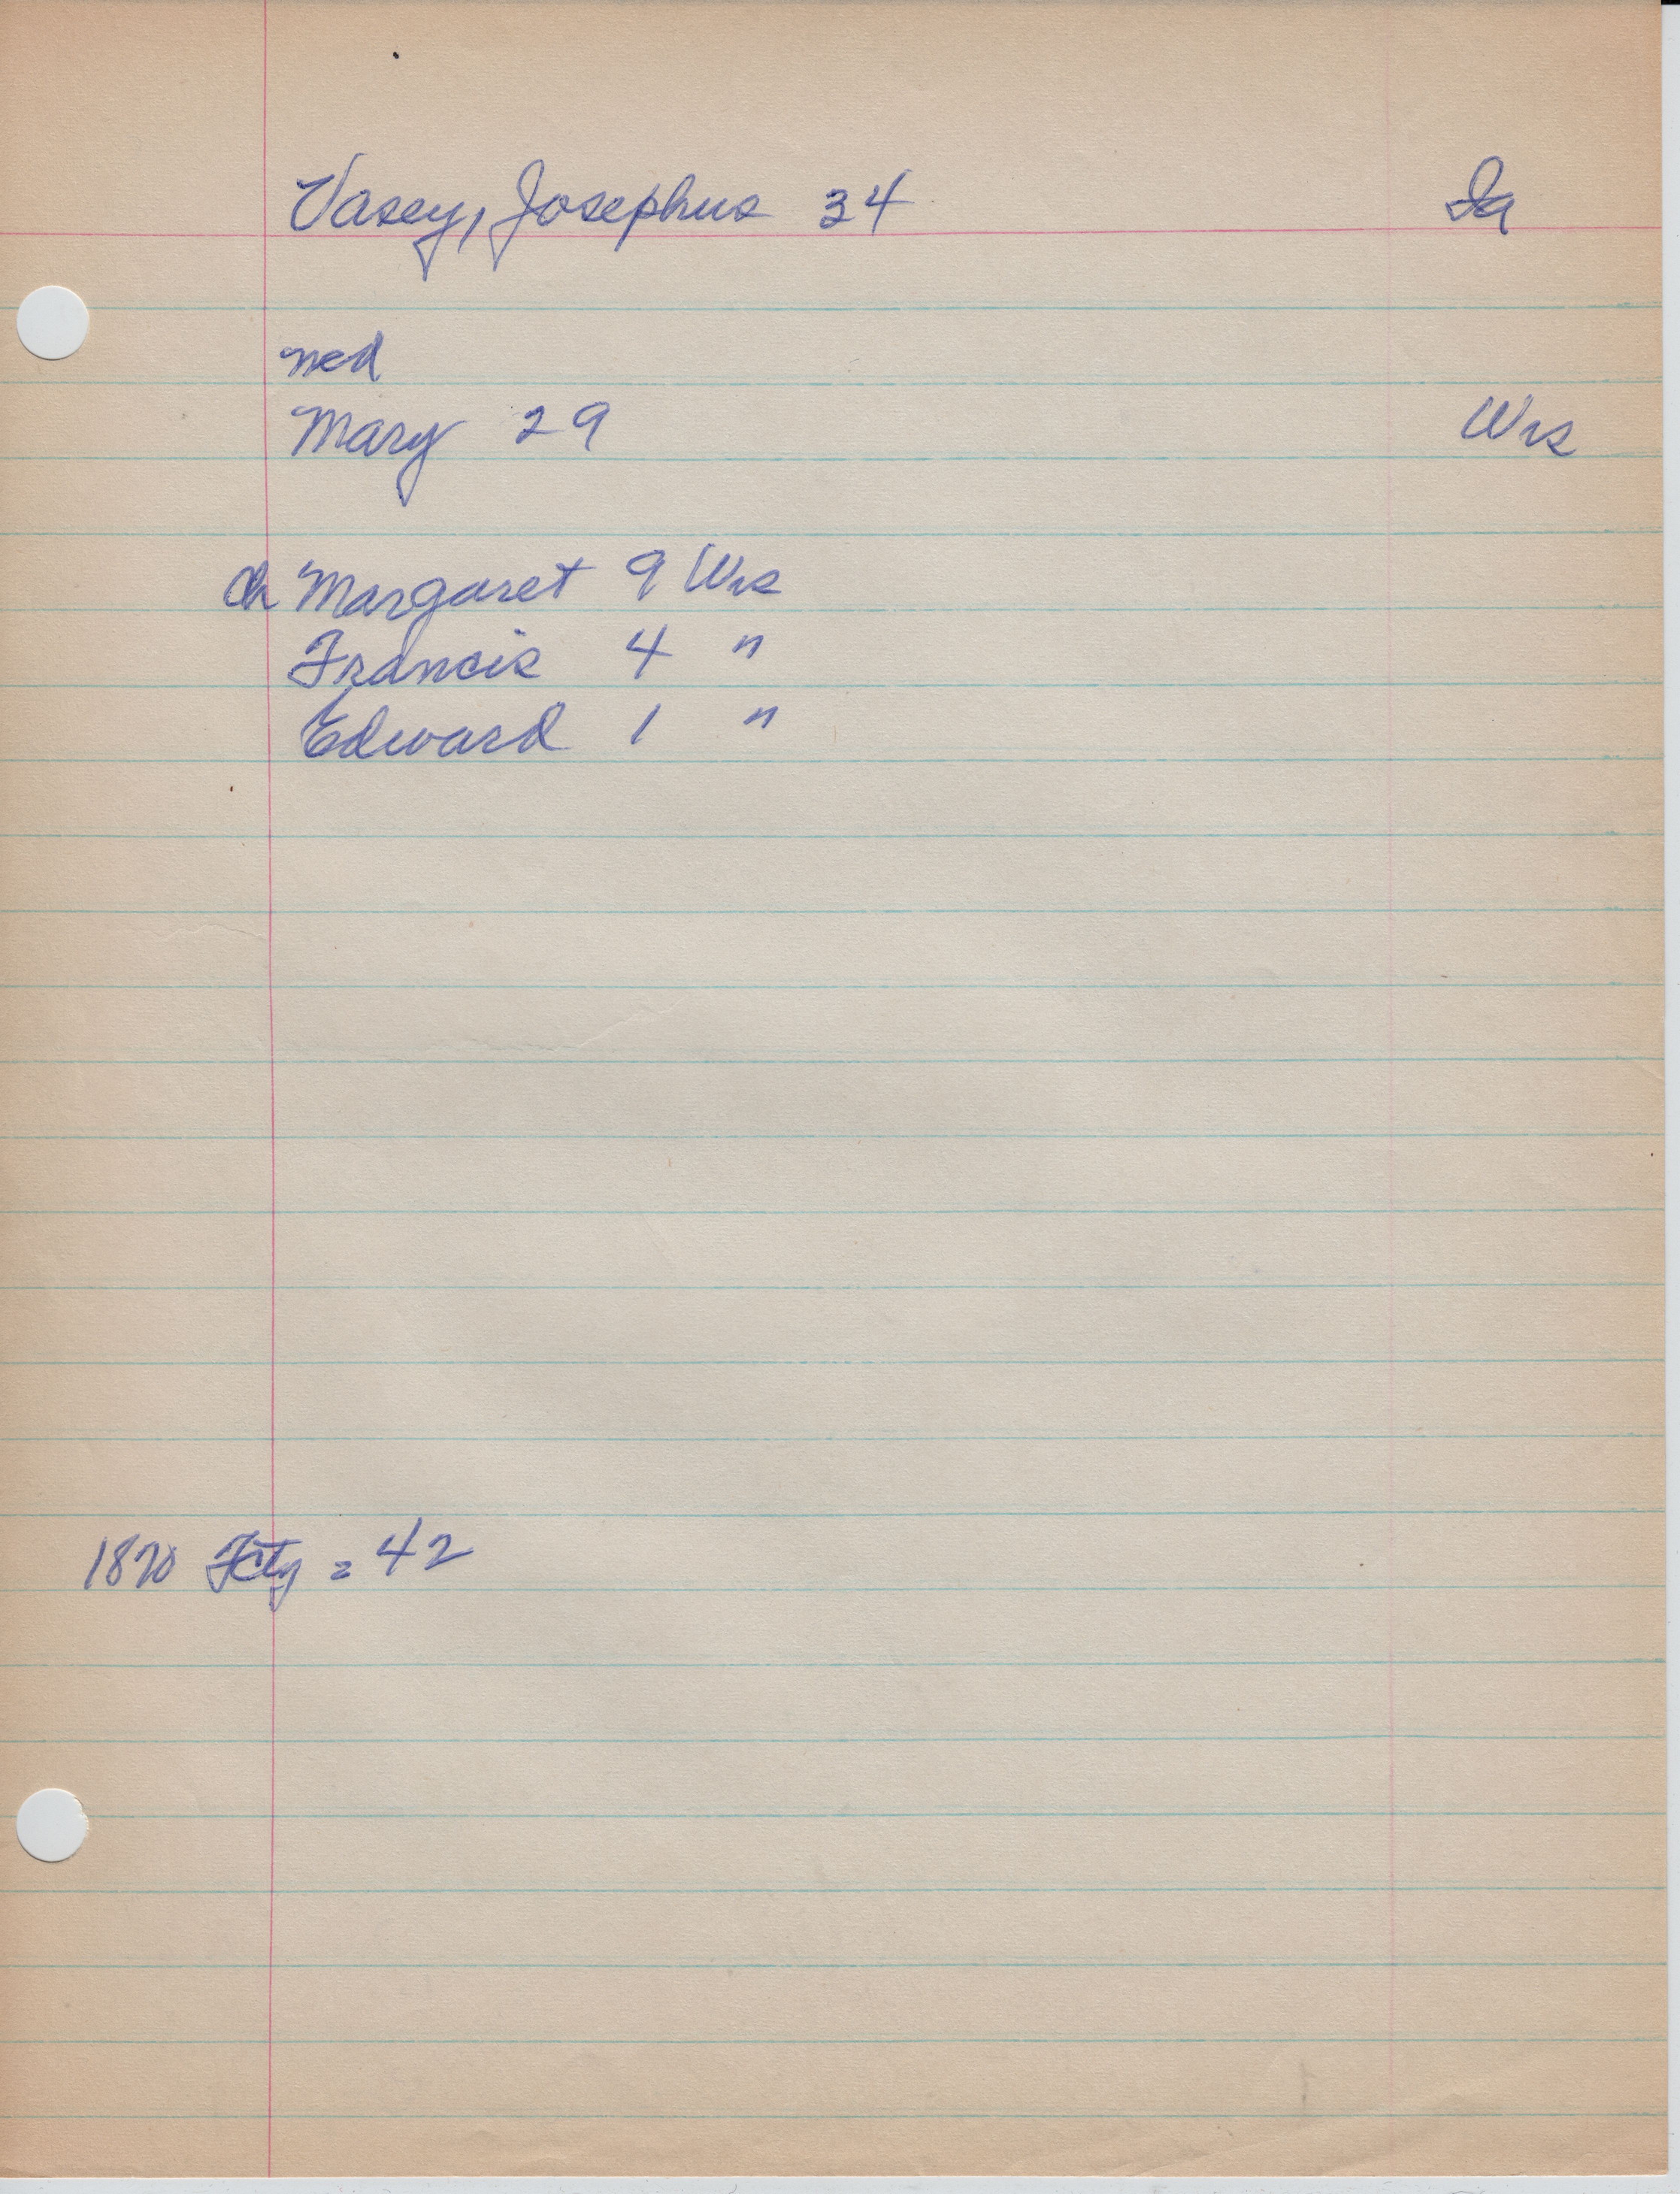 Vasey, Josephus 34 Ia
med
Mary 29 Wis
ch Margaret 9 Wis
Francis 4 "
Edward 1 "
1870 FCty = 42